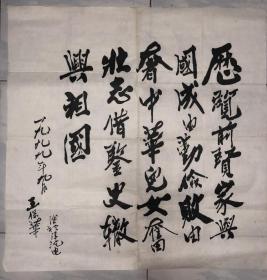 歷覽前賢家與
國成由勤儉敗由
奢中華兒女奮
壯志借鑒史轍
興祖國
一九九九年九月